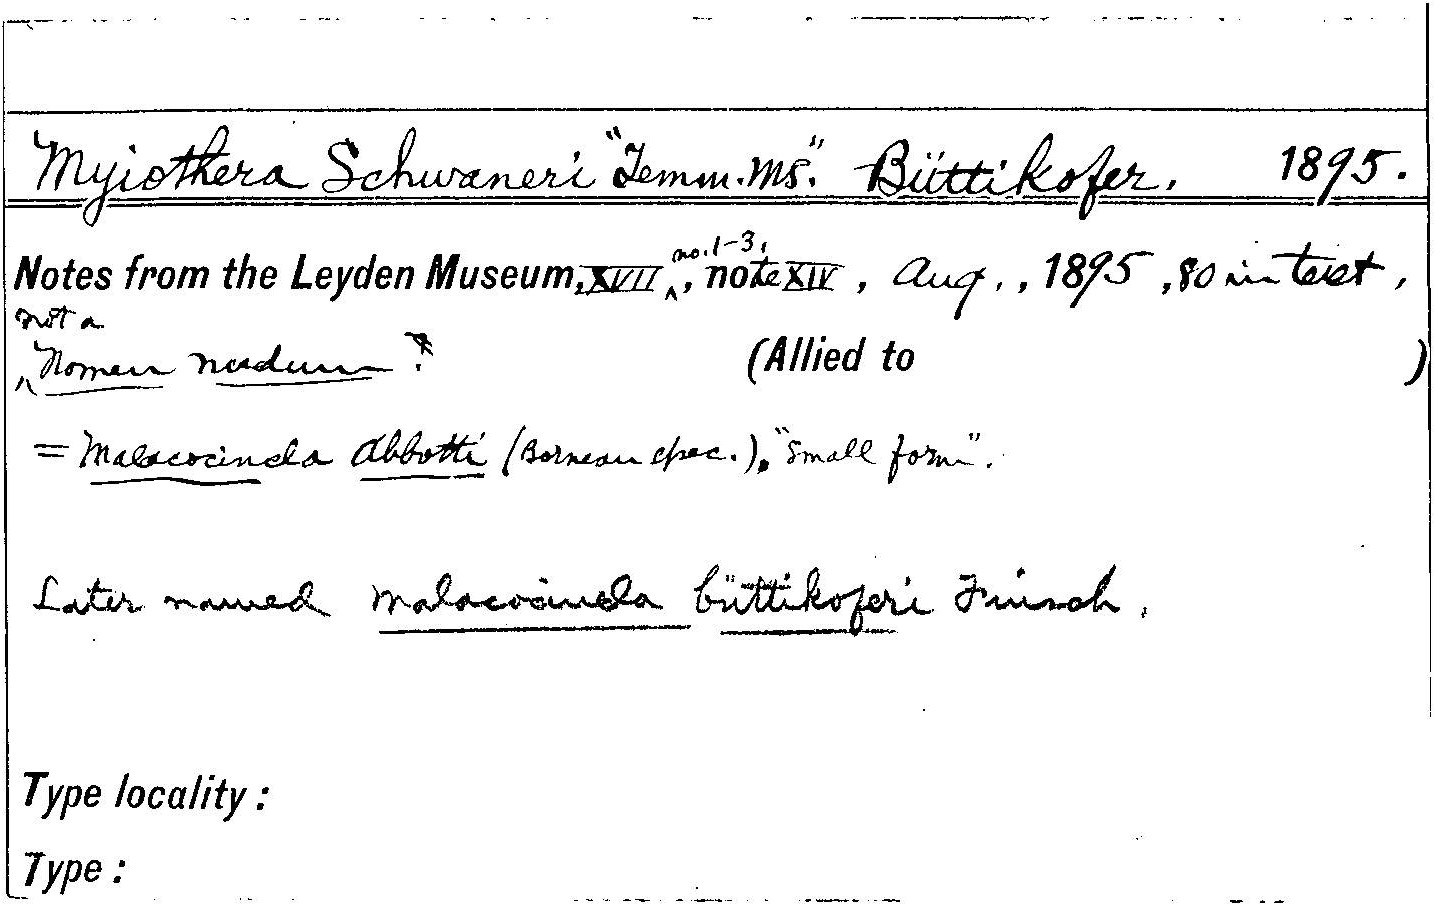 Myiothera Schwaneri "Temm. MS." Büttikofer. 1895.
Notes from the Leyden Museum, XVII, no. 1-3, note XIV, Aug., 1895, 80 in text,
not a
Nomen nudum. (Allied to )
= Malacocincla abbotti (Bornean spec.). "Small form".
Later named Malacocincla büttikoferi Finsch.
Type locality :
Type :